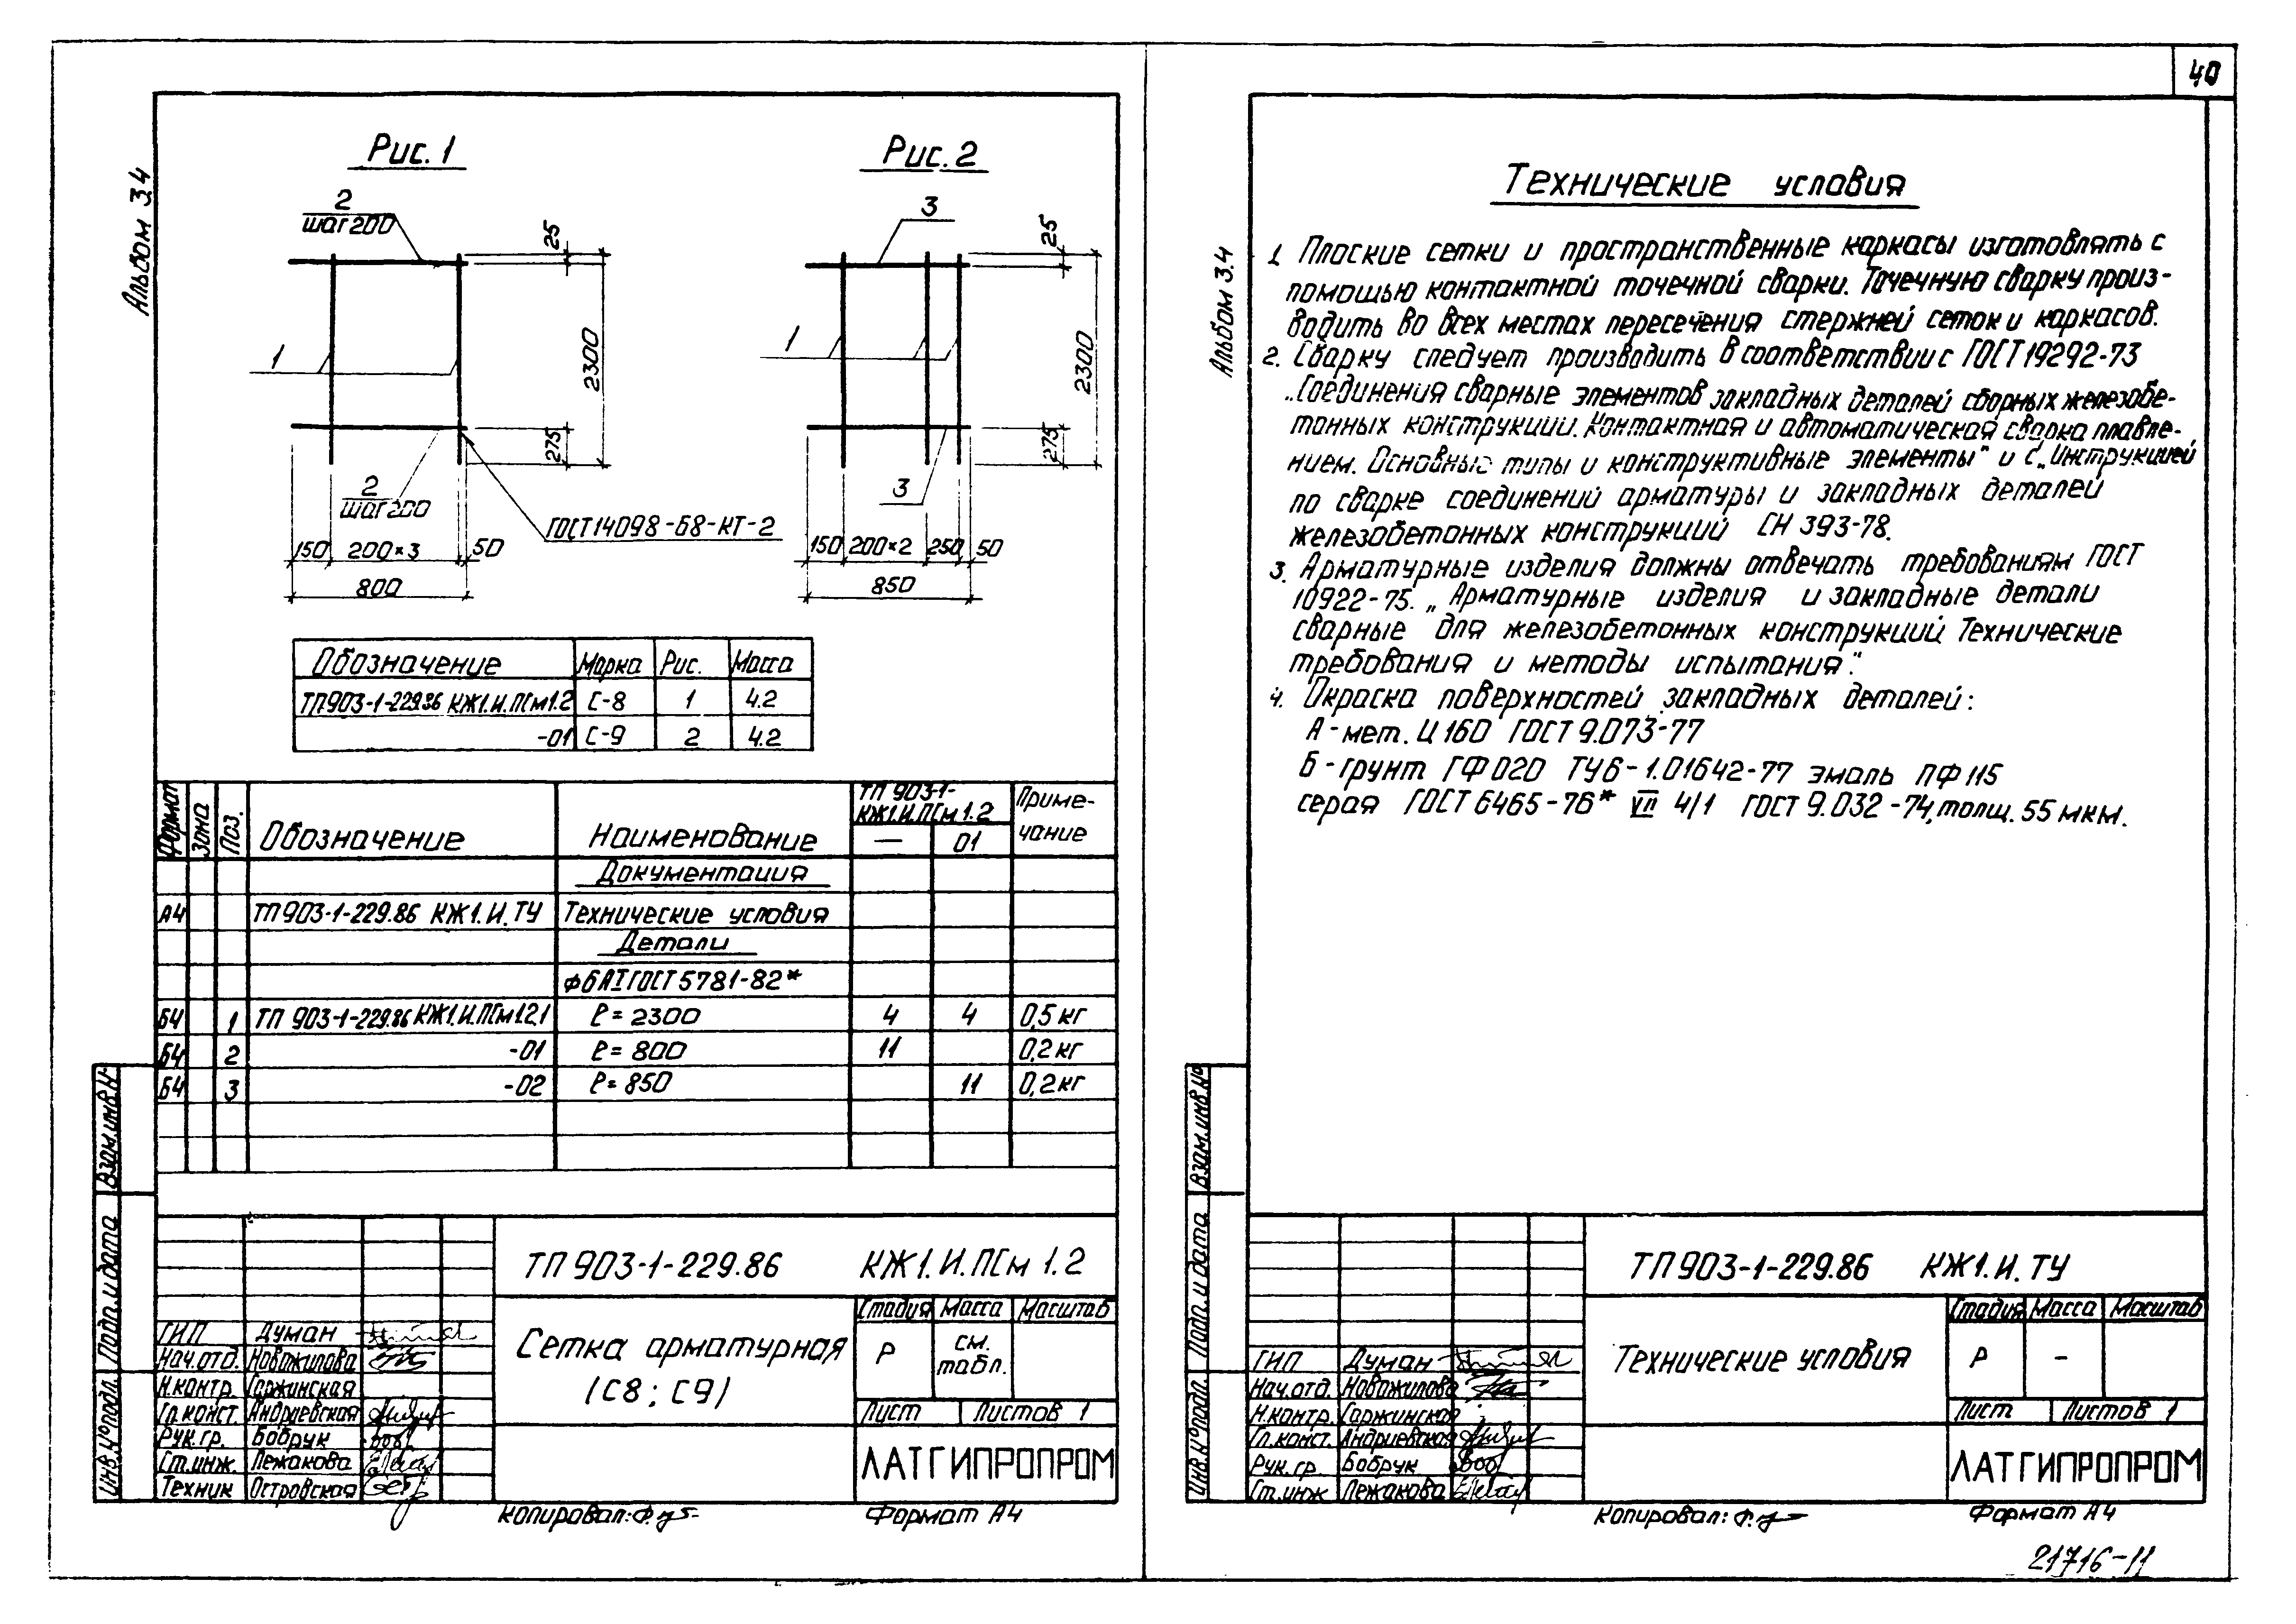 40
Альбом 3.4
Рис. 1
2
шаг 200
25
1
2300
275
2
шаг 200
ГОСТ 14098-68-КТ-2
150 200×3 50
800
Рис. 2
3
25
1
2300
275
3
150 200×2 250 50
850
Обозначение Марка Рис. Масса
ТП 903-1-229.86 КЖ1.И.ПСм1.2 С-8 1 4.2
-01 С-9 2 4.2
Формат Зона Поз. Обозначение Наименование ТП 903-1- КЖ1.И.ПСм 1.2 Приме-
— 01 чание
Документация
А4 ТП 903-1-229.86 КЖ1.И.ТУ Технические условия
Детали
ф6АI ГОСТ 5781-82*
Б4 1 ТП 903-1-229.86 КЖ1.И.ПСм1.2.1 ℓ=2300 4 4 0,5 кг
Б4 2 -01 ℓ=800 11 0,2 кг
Б4 3 -02 ℓ=850 11 0,2 кг
Взам.инв.№
Подп. и дата
Инв.№ подл.
ТП 903-1-229.86 КЖ1.И.ПСм 1.2
Стадия Масса Масштаб
Сетка арматурная
(С8; С9)
Р см. табл.
Лист Листов 1
ЛАТГИПРОПРОМ
ГИП Думан
Нач.отд. Новожилова
Н.контр. Гаржинская
Гл.конст. Андриевская
Рук.гр. Бобрук
Ст.инж. Лежакова
Техник Островская
Копировал:
Формат А4
Альбом 3.4
Технические условия
1. Плоские сетки и пространственные каркасы изготовлять с
помощью контактной точечной сварки. Точечную сварку произ-
водить во всех местах пересечения стержней сеток и каркасов.
2. Сварку следует производить в соответствии с ГОСТ 19292-73
„Соединения сварные элементов закладных деталей сборных железобе-
тонных конструкций. Контактная и автоматическая сварка плавле-
нием. Основные типы и конструктивные элементы" и с „Инструкцией
по сварке соединений арматуры и закладных деталей
железобетонных конструкций СН 393-78.
3. Арматурные изделия должны отвечать требованиям ГОСТ
10922-75. „Арматурные изделия и закладные детали
сварные для железобетонных конструкций. Технические
требования и методы испытания".
4. Окраска поверхностей закладных деталей:
А - мет. Ц 160 ГОСТ 9.073-77
Б - грунт ГФ 020 ТУ 6-1.01642-77 эмаль ПФ 115
серая ГОСТ 6465-76* VII 4/1 ГОСТ 9.032-74, толщ. 55 мкм.
Взам.инв.№
Подп. и дата
Инв.№ подл.
ТП 903-1-229.86 КЖ1.И.ТУ
Стадия Масса Масштаб
Технические условия
Р -
Лист Листов 1
ЛАТГИПРОПРОМ
ГИП Думан
Нач.отд. Новожилова
Н.контр. Гаржинская
Гл.конст. Андриевская
Рук.гр. Бобрук
Ст.инж Лежакова
Копировал:
Формат А4
21716-11